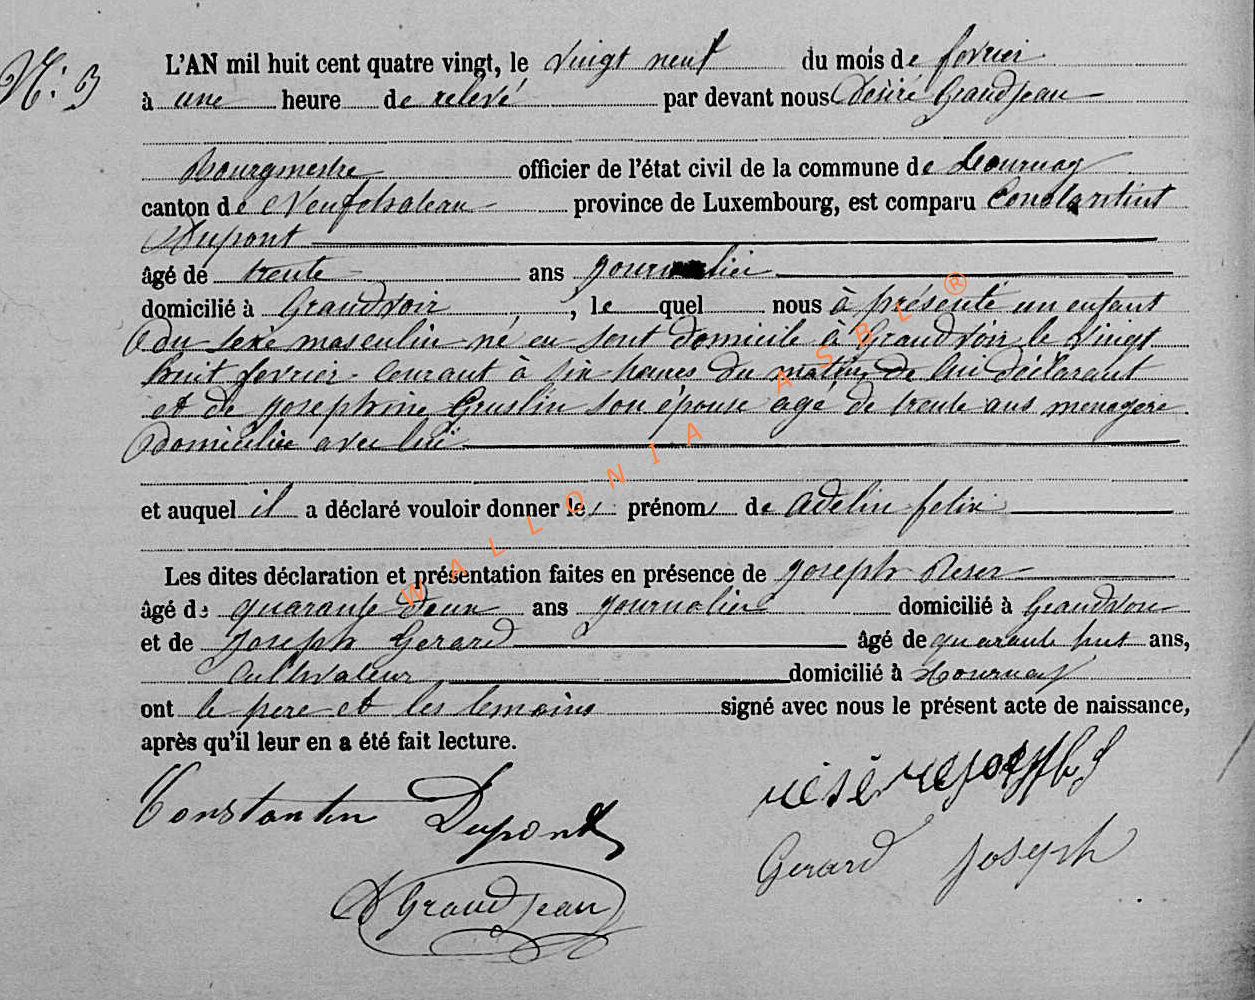 N: 3
L'AN mil huit cent quatre vingt, le vingt neuf du mois de fevrier
à une heure de relevé par devant nous Désiré Grandjean
Bourgmestre officier de l'état civil de la commune de Tournay
canton de Neufchateau province de Luxembourg, est comparu Constantint
Dupont
âgé de trente ans journalier
domicilié à Grandvoir , le quel nous à présenté un enfant
du sexe masculin né en sont domicile à Grandvoir le vingt
huit fevrier courant à six heures du matin de lui déclarant
et de josephine Gruslin son épouse agé de trente ans menagere
domiciliée avec lui
et auquel il a déclaré vouloir donner les prénoms de adelin felix
Les dites déclaration et présentation faites en présence de joseph Reser
âgé de quarante deux ans journalier domicilié à Grandvoir
et de joseph Gerard âgé de quarante huit ans,
cultivateur domicilié à Tournay
ont le pere et les temoins signé avec nous le présent acte de naissance,
après qu'il leur en a été fait lecture.
Constantin Dupont
Gerard Joseph
D Grandjean
WALLONIA ASBL ®